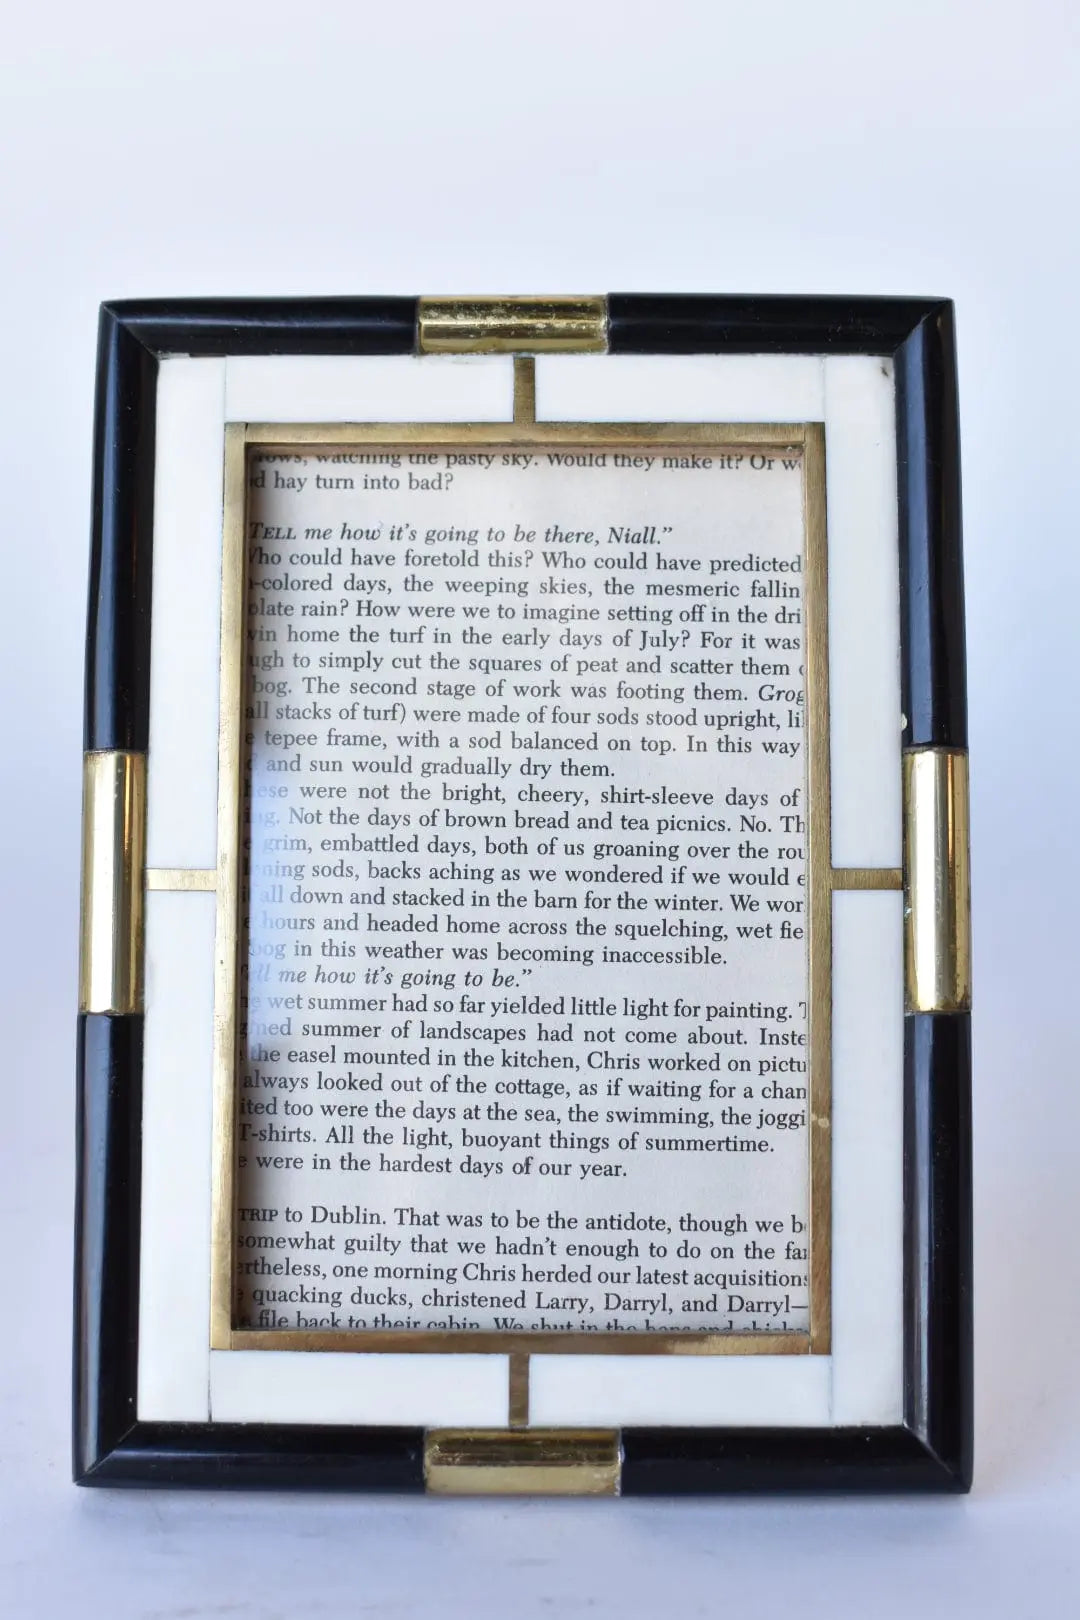 watching the pasty sky. Would they make it? Or
hay turn into bad?
TELL me how it's going to be there, Niall."
could have foretold this? Who could have predicted
-colored days, the weeping skies, the mesmeric
rain? How were we to imagine setting off in the
home the turf in the early days of July? For it was
to simply cut the squares of peat and scatter them
bog. The second stage of work was footing them.
stacks of turf) were made of four sods stood upright,
tepee frame, with a sod balanced on top. In this way
and sun would gradually dry them.
were not the bright, cheery, shirt-sleeve days of
Not the days of brown bread and tea picnics. No.
grim, embattled days, both of us groaning over the
sods, backs aching as we wondered if we would
all down and stacked in the barn for the winter. We
hours and headed home across the squelching, wet
bog in this weather was becoming inaccessible.
me how it's going to be."
wet summer had so far yielded little light for painting.
summer of landscapes had not come about.
the easel mounted in the kitchen, Chris worked on
always looked out of the cottage, as if waiting for a
too were the days at the sea, the swimming, the
T-shirts. All the light, buoyant things of summertime.
were in the hardest days of our year.
TRIP to Dublin. That was to be the antidote, though we
somewhat guilty that we hadn't enough to do on the
one morning Chris herded our latest acquisitions
quacking ducks, christened Larry, Darryl, and Darryl—
file back to their cabin. We shut in the hens and